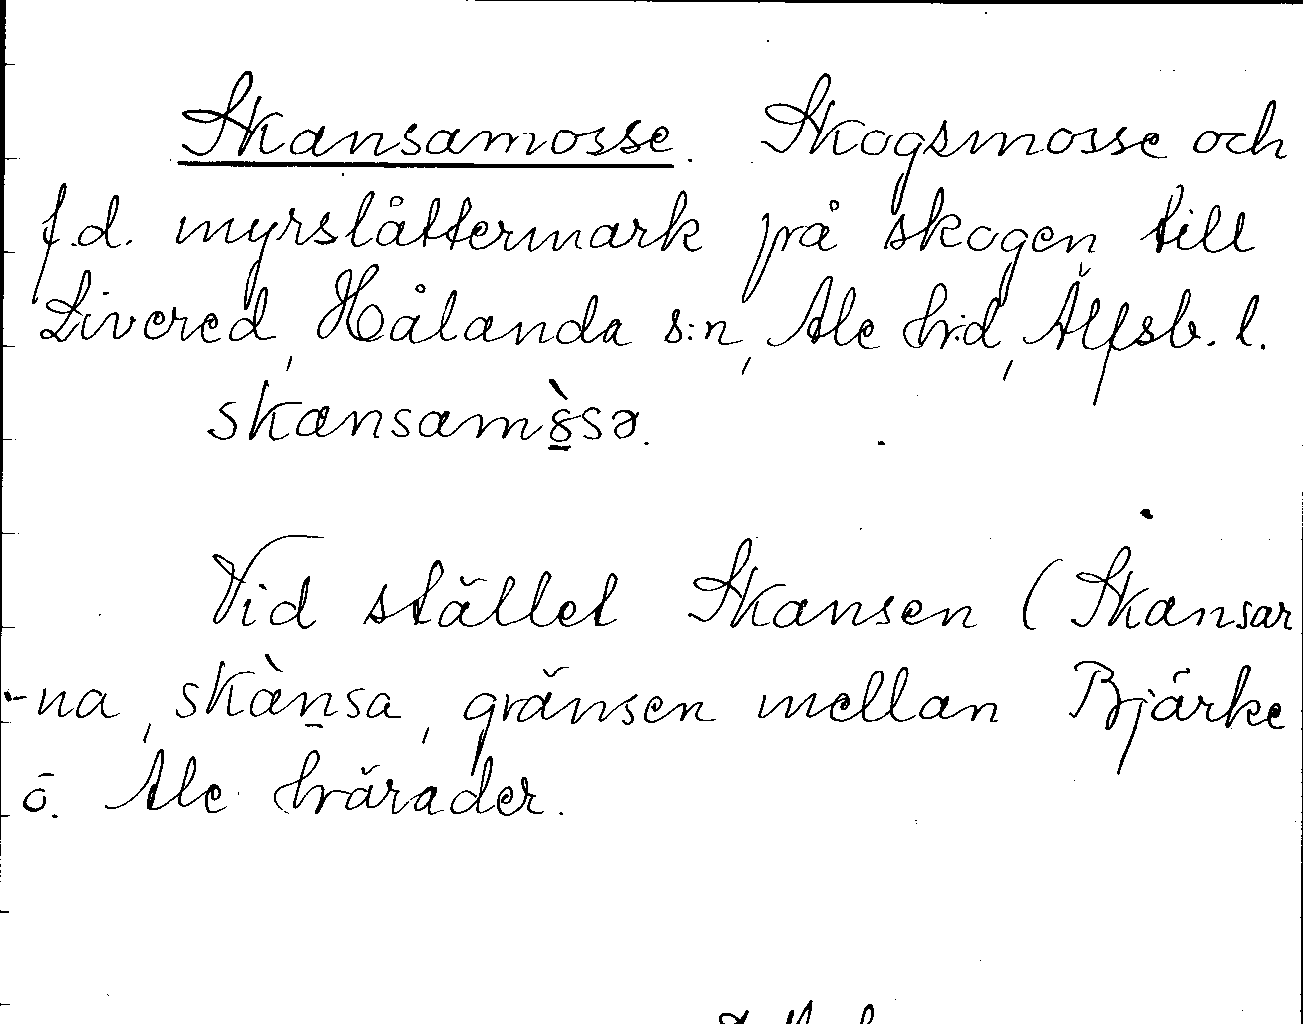 Skansamosse. Skogsmosse och
f.d. myrslåttermark på skogen till
Livered, Hålanda s:n, Ale hd, Älfsb. l.
skansamòsə.
Vid stället Skansen (Skansar
-na, skànsa, gränsen mellan Bjärke
o. Ale härader.